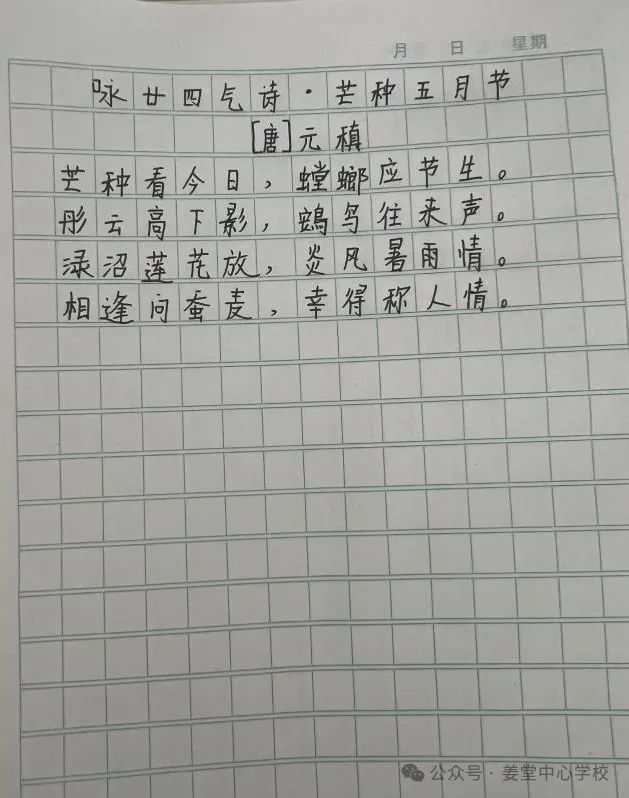 月 日 星期
咏廿四气诗·芒种五月节
[唐]元稹
芒种看今日，螳螂应节生。
彤云高下影，鴳鸟往来声。
渌沼莲花放，炎风暑雨情。
相逢问蚕麦，幸得称人情。
公众号·姜堂中心学校